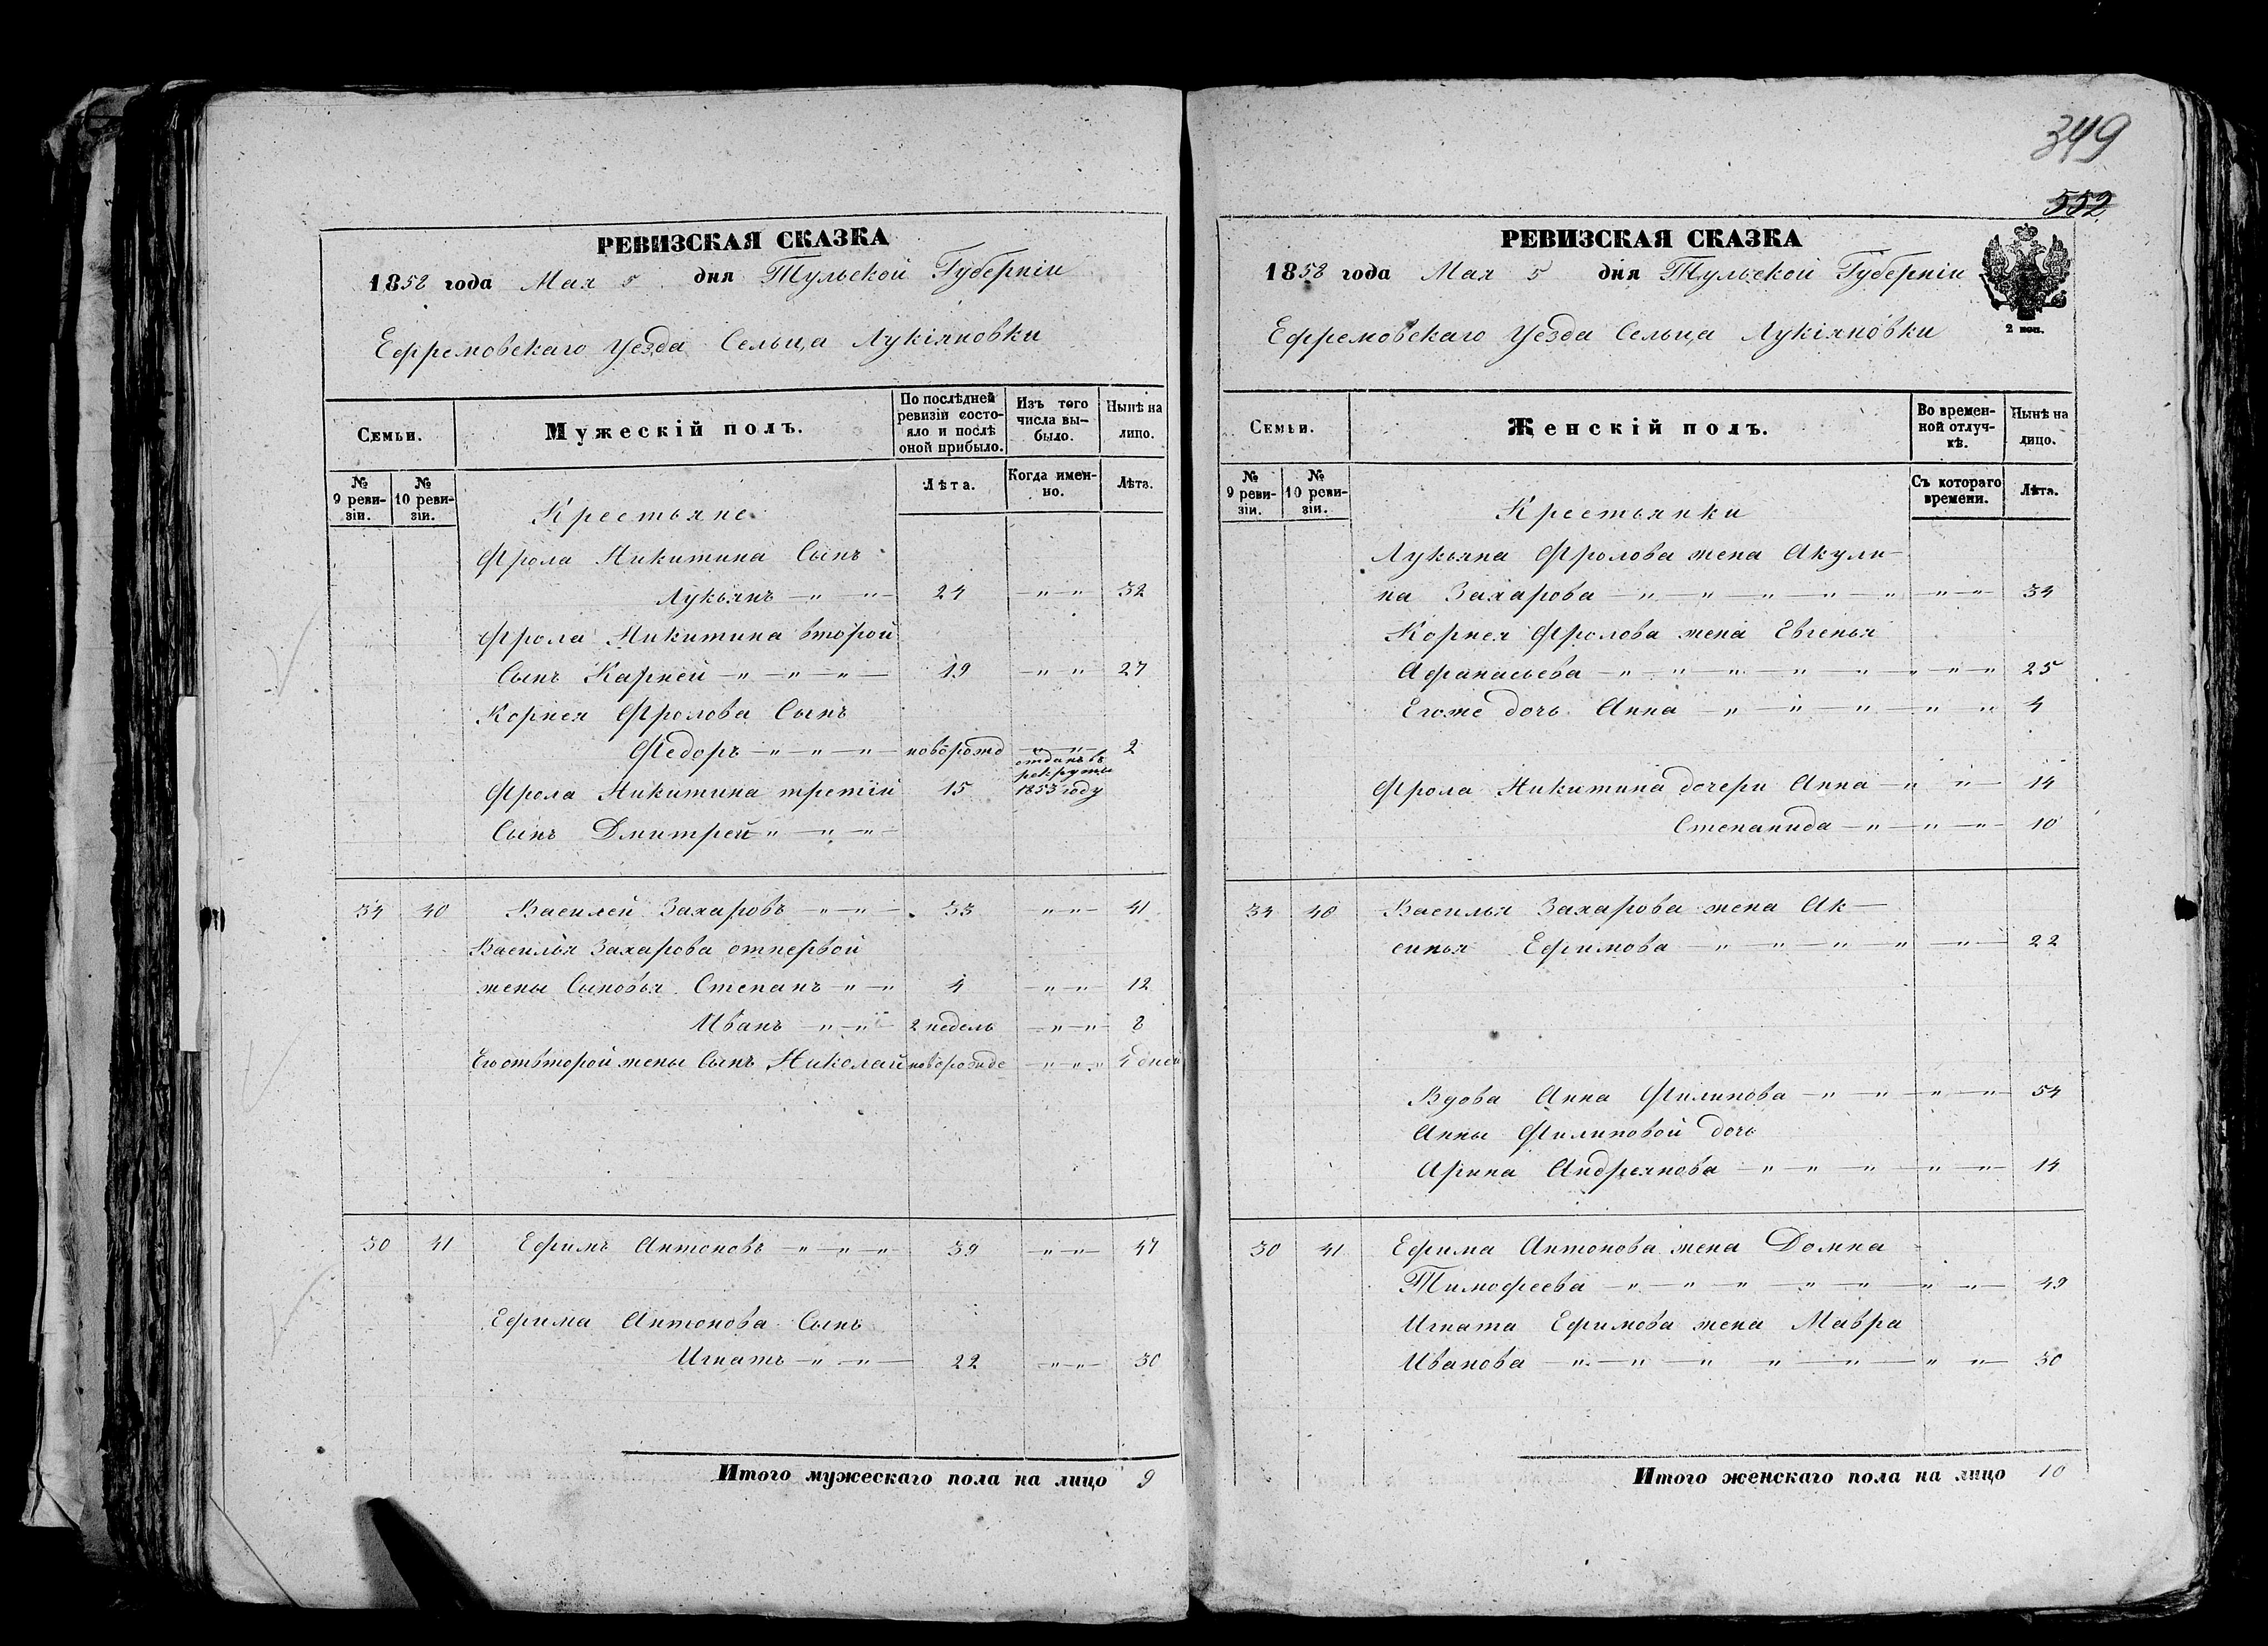 РЕВИЗСКАЯ СКАЗКА
1858 года Мая 5 дня Тульской Губерніи
Ефремовскаго Уезда Сельца Лукіяновки
Семьи. Мужескій полъ. По послѣдней ревизіи состояло и послѣ оной прибыло. Изъ того числа выбыло. Нынѣ на лицо.
№ 9 ревизіи. № 10 ревизіи. Лѣта. Когда именно. Лѣта.
Крестьяне
Фрола Никитина Сынъ
Лукьянъ — " — " — 24 — " — " — 32
Фрола Никитина второй
Сынъ Карней — " — " — " — 19 — " " 27
Корнея Фролова Сынъ
Федоръ — " — " — " — новорожд — " — " — 2
Фрола Никитина третій 15 отданъ въ рекруты 1853 году
Сынъ Дмитрей " — " — " —
34 40 Василей Захаровъ — " — " — 33 " — " — 41
Василья Захарова отпервой
жены Сыновья Степанъ — " — " 4 — " — " — 12
Иванъ — " — " 2 недель — " — " — 8
Его отвторой жены Сынъ Николай новорожде — " — " — " 4 дней
30 41 Ефимъ Антоновъ — " — " — " 39 " — " — 47
Ефима Антонова Сынъ
Игнатъ — " — " — 22 — " — " — 30
Итого мужескаго пола на лицо 9
349
552
РЕВИЗСКАЯ СКАЗКА
1858 года Мая 5 дня Тульской Губерніи
2 коп.
Ефремовскаго Уезда Сельца Лукіяновки
Семьи. Женскій полъ. Во временной отлучкѣ. Нынѣ на лицо.
№ 9 ревизіи. № 10 ревизіи. Съ котораго времени. Лѣта.
Крестьянки
Лукьяна Фролова жена Акули-
на Захарова — " — " — " — " — " — " — " — 34
Корнея Фролова жена Евгенья
Афанасьева — " — " — " — " — " — " — " — " 25
Егоже дочь Анна — " — " — " — " — " 4
Фрола Никитина дочери Анна — " — " — 14
Степанида — " — " — " — 10
34 40 Василья Захарова жена Ак-
синья Ефимова — " — " — " — " — " — 22
Вдова Анна Филипова — " — " — " — " — 54
Анны Филиповой дочь
Арина Андреянова — " — " — " — " — " — 14
30 41 Ефима Антонова жена Домна
Тимофеева — " — " — " — " — " — " — " — 49
Игната Ефимова жена Мавра
Иванова — " — " — " — " — " — " — " — 30
Итого женскаго пола на лицо 10